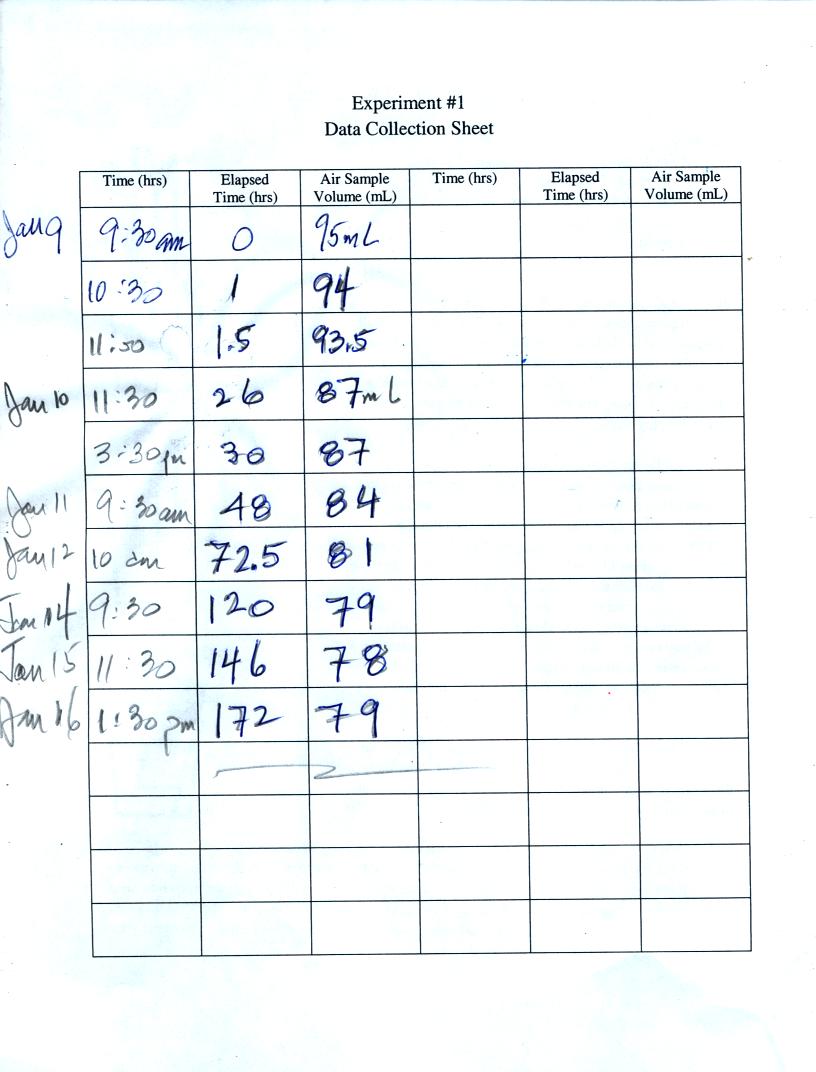 Experiment #1
Data Collection Sheet
Time (hrs) Elapsed Time (hrs) Air Sample Volume (mL) Time (hrs) Elapsed Time (hrs) Air Sample Volume (mL)
Jan 9 9:30am 0 95mL
10:30 1 94
1.5 93.5
Jan 10 11:30 26 87mL
3:30pm 30 87
Jan 11 9:30am 48 84
Jan 12 10 am 72.5 81
Jan 14 9:30 120 79
Jan 15 11:30 146 78
Jan 16 1:30pm 172 79